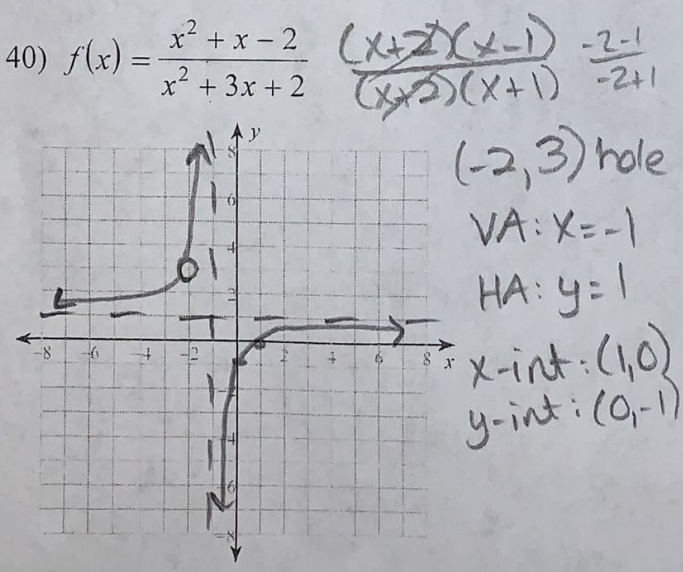 40) f(x) = (x² + x − 2)/(x² + 3x + 2)
((x+2)(x-1))/((x+2)(x+1))
(-2-1)/(-2+1)
(-2,3) hole
VA: x=-1
HA: y=1
x-int: (1,0)
y-int: (0,-1)
y
8
6
4
2
-8 -6 -4 -2 2 4 6 8 x
-4
-6
-8